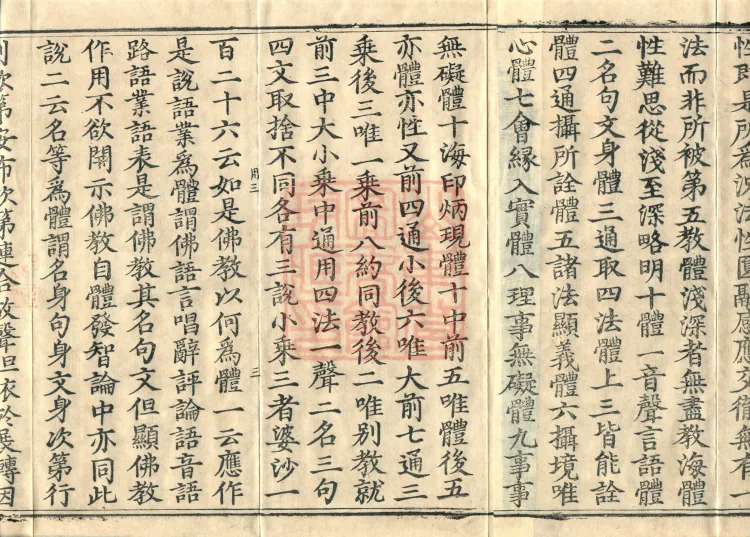 性
法而非所被第五教體淺深者無盡教海體
性難思從淺至深略明十體一音聲言語體
二名句文身體三通取四法體上三皆能詮
體四通攝所詮體五諸法顯義體六攝境唯
心體七會緣入實體八理事無礙體九事事
無礙體十海印炳現體十中前五唯體後五
亦體亦性又前四通小後六唯大前七通三
乘後三唯一乘前八約同教後二唯別教就
前三中大小乘中通用四法一聲二名三句
四文取捨不同各有三說小乘三者婆沙一
用三
三
百二十六云如是佛教以何為體一云應作
是說語業為體謂佛語言唱辭評論語音語
路語業語表是謂佛教其名句文但顯佛教
作用不欲開示佛教自體發智論中亦同此
說二云名等為體謂名身句身文身次第行
列次第安布次第連合故聲但依於展轉因